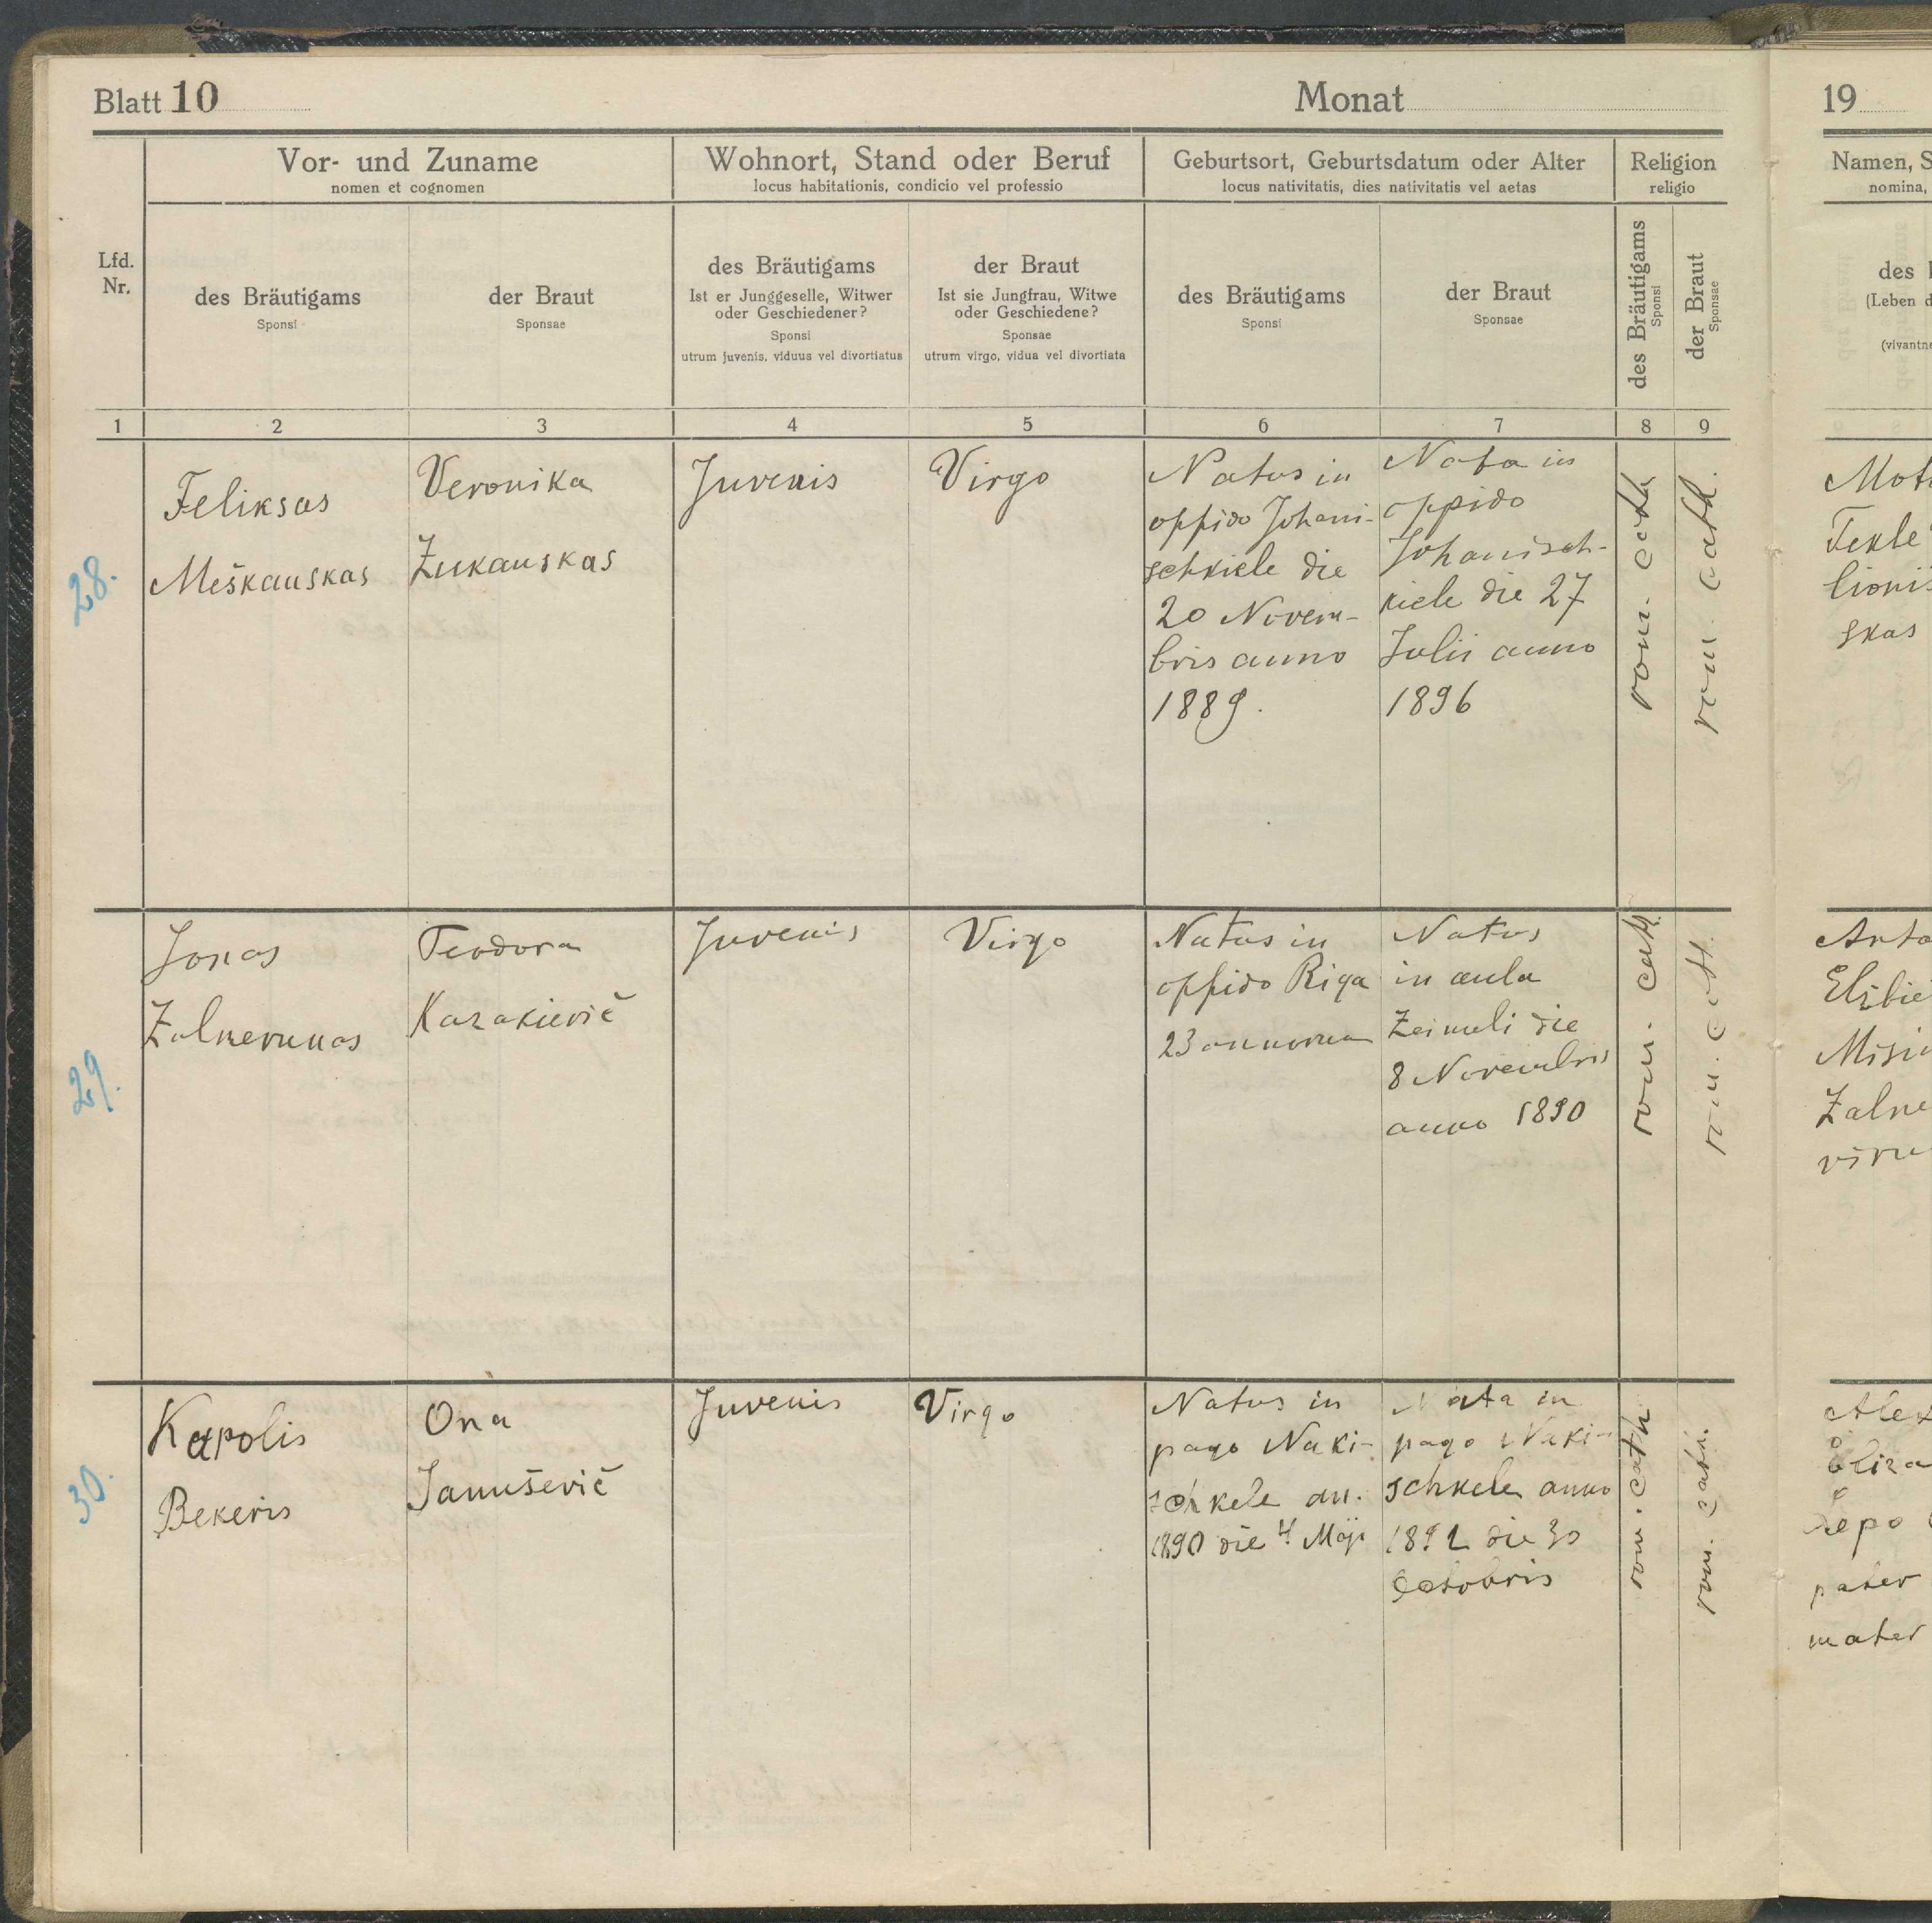 Blatt 10
Monat
19
Vor- und Zuname
nomen et cognomen
Wohnort, Stand oder Beruf
locus habitationis, condicio vel professio
Geburtsort, Geburtsdatum oder Alter
locus nativitatis, dies nativitatis vel aetas
Religion
religio
Namen, S
nomina,
Lfd.
Nr.
des Bräutigams
Sponsi
der Braut
Sponsae
des Bräutigams
Ist er Junggeselle, Witwer
oder Geschiedener?
Sponsi
utrum juvenis, viduus vel divortiatus
der Braut
Ist sie Jungfrau, Witwe
oder Geschiedene?
Sponsae
utrum virgo, vidua vel divortiata
des Bräutigams
Sponsi
der Braut
Sponsae
des Bräutigams
Sponsi
der Braut
Sponsae
des
(Leben d
(vivantne
1
2
3
4
5
6
7
8
9
28.
Feliksas
Meškauskas
Veronika
Žukauskas
Juvenis
Virgo
Natus in
oppido Johani-
schkiele die
20 Novem-
bris anno
1889.
Nata in
oppido
Johanisch-
kiele die 27
Julii anno
1896
rom. cath
rom. cath.
Tekle
lionis
skas
29.
Jonas
Žalnerunas
Teodora
Kazakievič
Juvenis
Virgo
Natus in
oppido Riga
23 annorum
Natus
in aula
Zeimeli die
8 Novembris
anno 1890
rom. cath.
rom. cath.
Anto
Elžbie
Misiu
Žalne
30.
Kapolis
Bekeris
Ona
Janušević
Juvenis
Virgo
Natus in
pago Naki-
schkele an.
1890 die 4 Maji
Nata in
pago Naki-
schkele anno
die 30
Octobris
rom. cath.
rom. cath.
Alex
Eliza
pater
mater